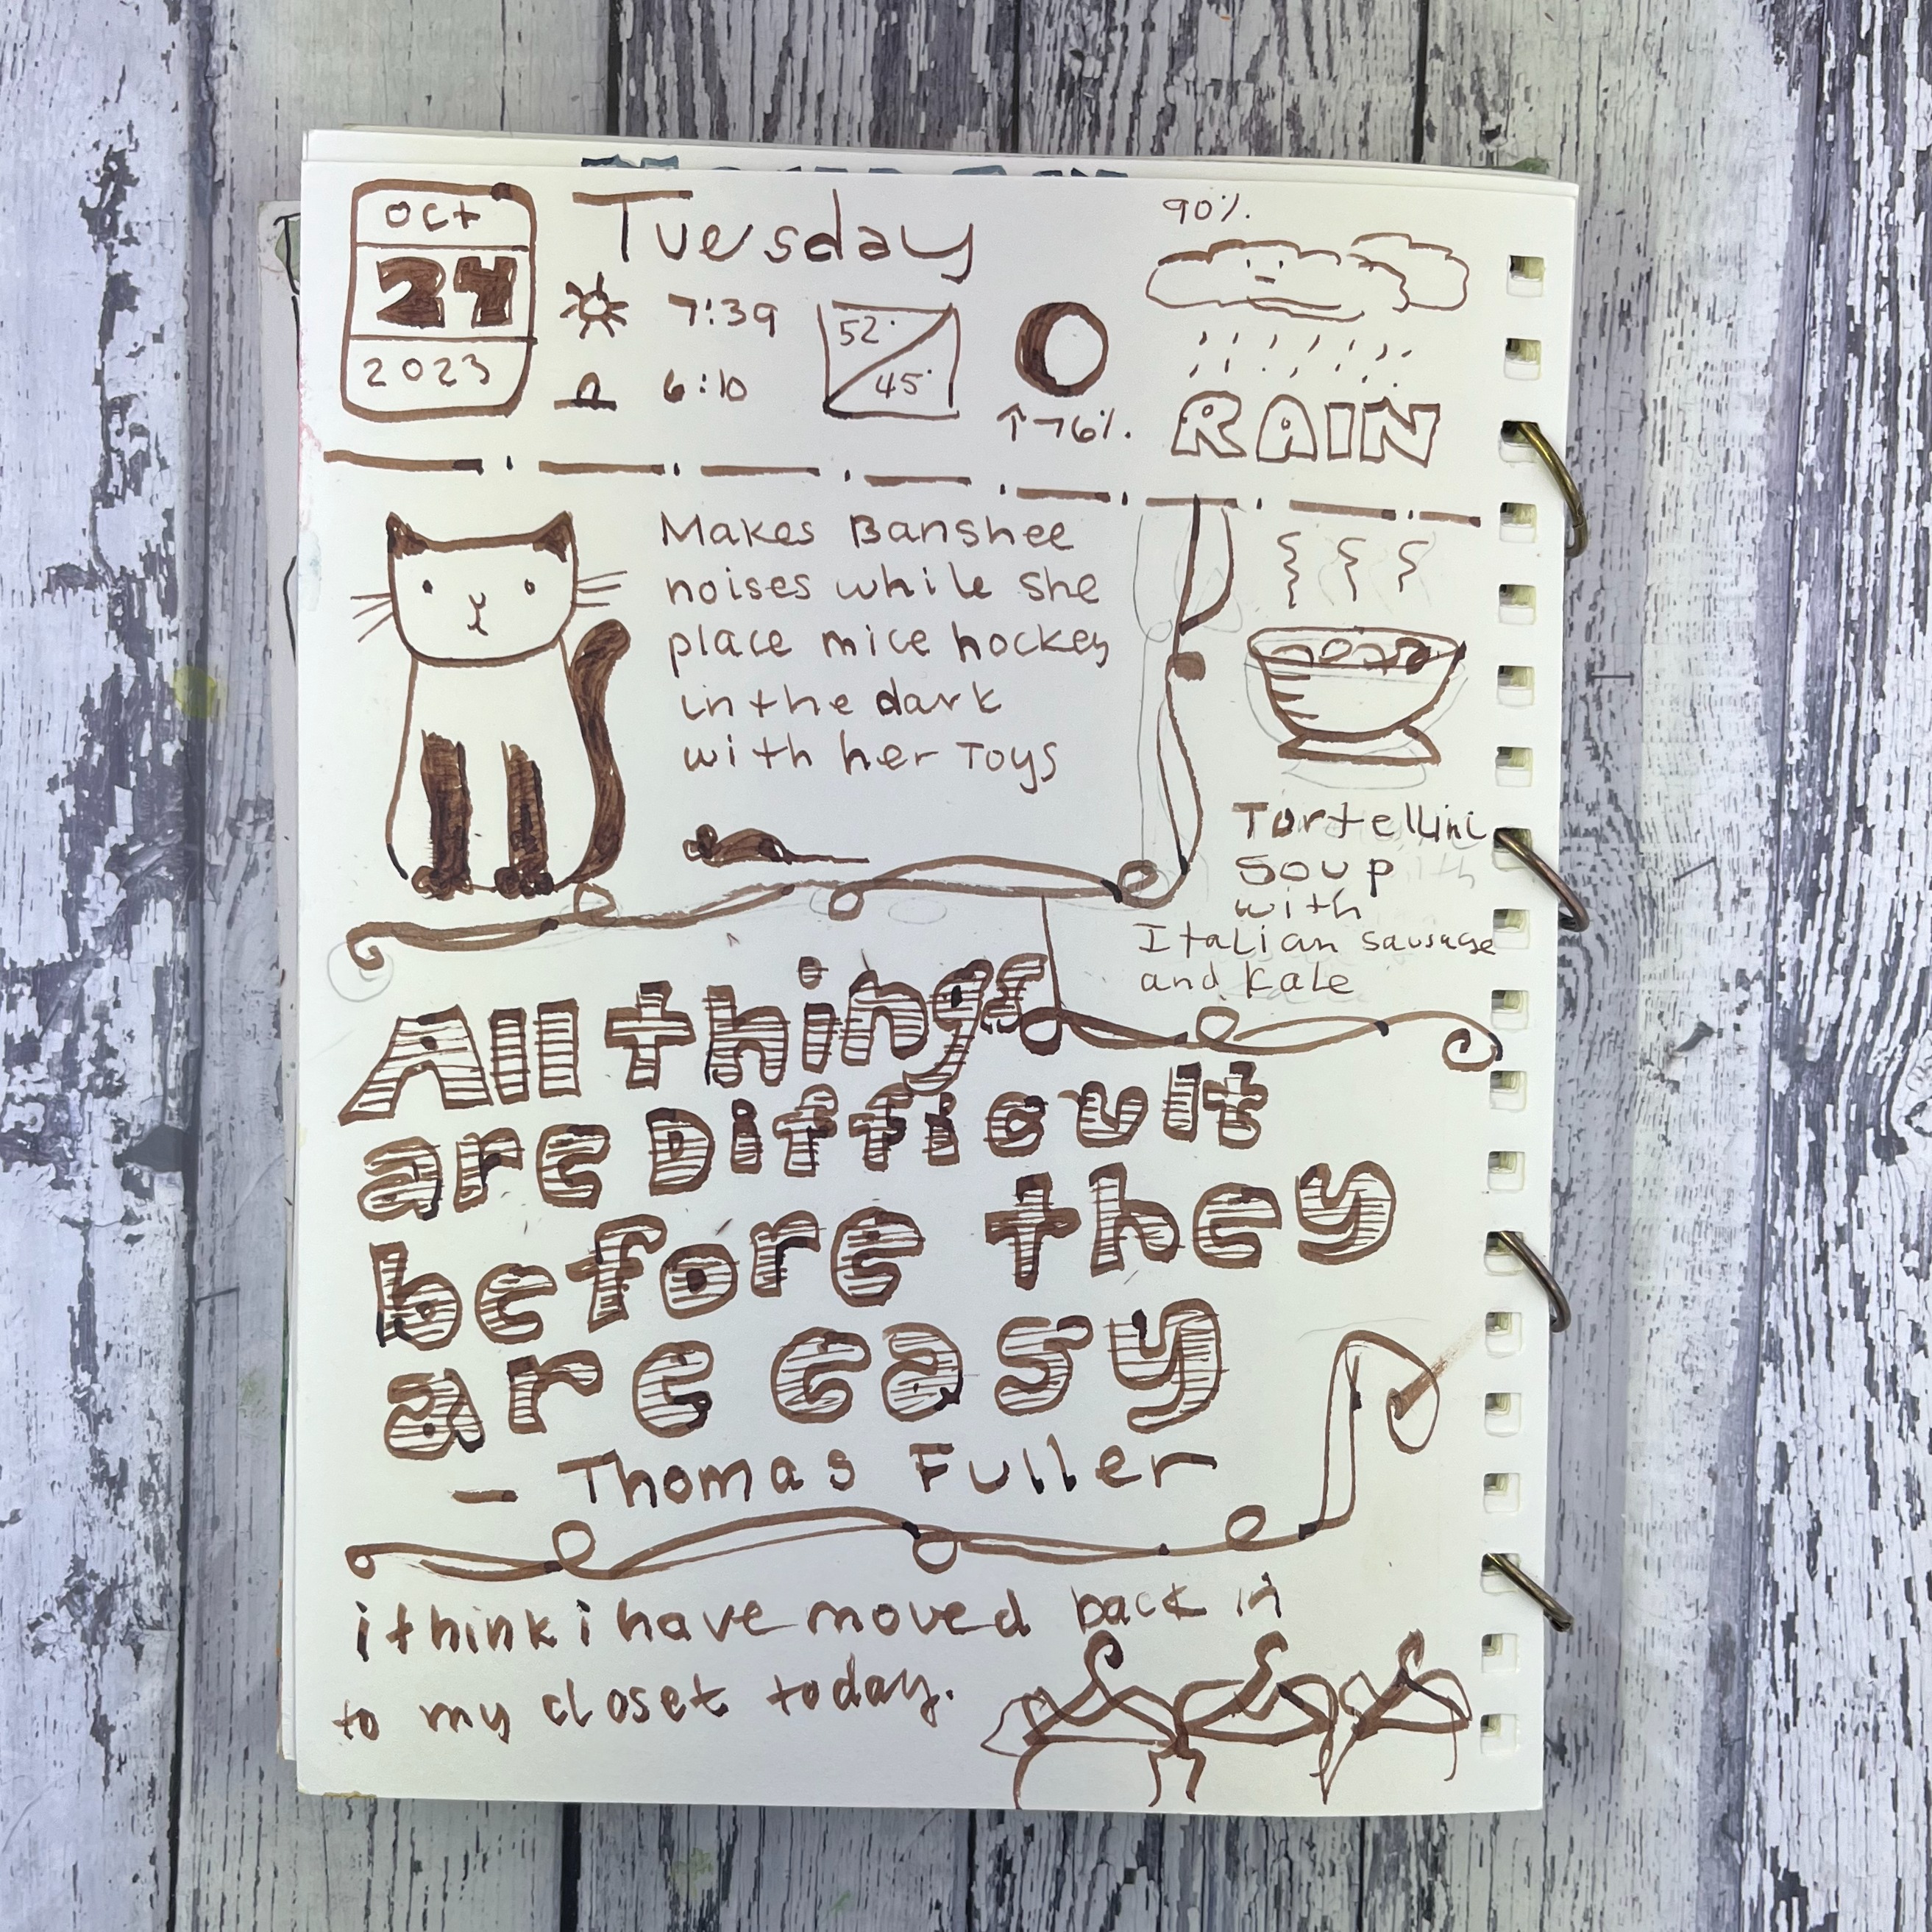 Oct
24
2023
Tuesday
7:39
6:10
52°
45°
↑76%.
90%.
RAIN
Makes Banshee
noises while she
place mice hockey
in the dark
with her Toys
Tortellini
Soup
with
Italian sausage
and kale
All things
are Difficult
before they
are easy
— Thomas Fuller
i think i have moved back in
to my closet today.